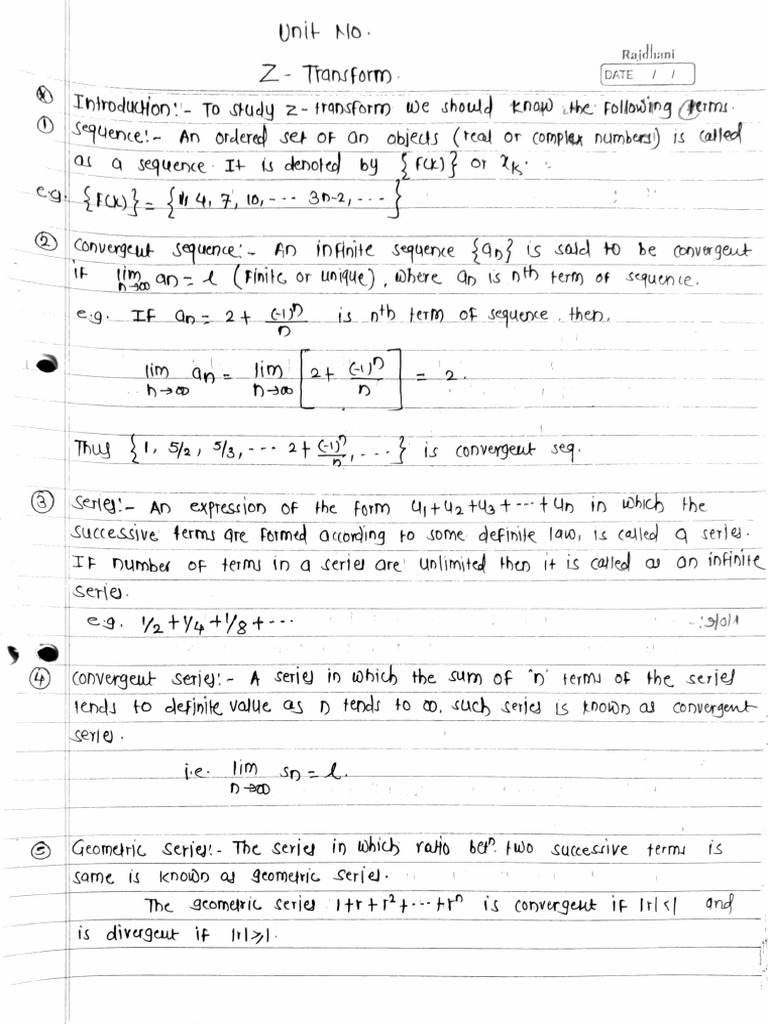 Unit No.
Rajdhani
Z - Transform.
DATE / /
⊛ Introduction:- To study z-transform we should know the following terms.
① Sequence:- An ordered set of an objects (real or complex numbers) is called
as a sequence. It is denoted by {f(k)} or xₖ.
e.g. {f(k)} = {1, 4, 7, 10, --- 3n-2, ---}
② Convergent sequence:- An infinite sequence {aₙ} is said to be convergent
if lim n→∞ aₙ = l (finite or unique), where aₙ is nth term of sequence.
e.g. If aₙ = 2 + (-1)ⁿ/n is nth term of sequence, then,
lim n→∞ aₙ = lim n→∞ [2 + (-1)ⁿ/n] = 2.
Thus {1, 5/2, 5/3, --- 2 + (-1)ⁿ/n, ...} is convergent seq.
③ Series:- An expression of the form u₁+u₂+u₃+---+uₙ in which the
successive terms are formed according to some definite law, is called a series.
If number of terms in a series are unlimited then it is called as an infinite
series.
e.g. 1/2 + 1/4 + 1/8 + ---
④ Convergent series:- A series in which the sum of 'n' terms of the series
tends to definite value as n tends to ∞, such series is known as convergent
series.
i.e. lim n→∞ sₙ = l.
⑤ Geometric series:- The series in which ratio betⁿ. two successive terms is
same is known as geometric series.
The geometric series 1+r+r²+---+rⁿ is convergent if |r|<1 and
is divergent if |r|⩾1.